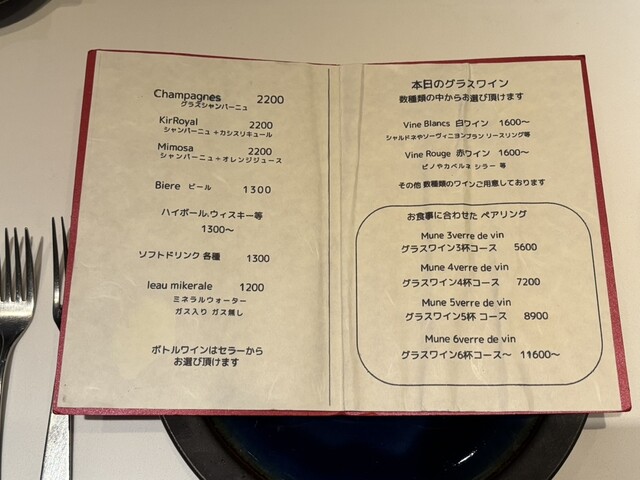 Champagnes 2200
グラスシャンパーニュ
KirRoyal 2200
シャンパーニュ+カシスリキュール
Mimosa 2200
シャンパーニュ+オレンジジュース
Biere ビール 1300
ハイボール.ウィスキー等
1300〜
ソフトドリンク 各種 1300
leau mikerale 1200
ミネラルウォーター
ガス入り ガス無し
ボトルワインはセラーから
お選び頂けます
本日のグラスワイン
数種類の中からお選び頂けます
Vine Blancs 白ワイン 1600〜
シャルドネやソーヴィニヨンブラン リースリング等
Vine Rouge 赤ワイン 1600〜
ピノやカベルネ シラー 等
その他 数種類のワインご用意しております
お食事に合わせた ペアリング
Mune 3verre de vin
グラスワイン3杯コース 5600
Mune 4verre de vin
グラスワイン4杯コース 7200
Mune 5verre de vin
グラスワイン5杯 コース 8900
Mune 6verre de vin
グラスワイン6杯コース〜 11600〜